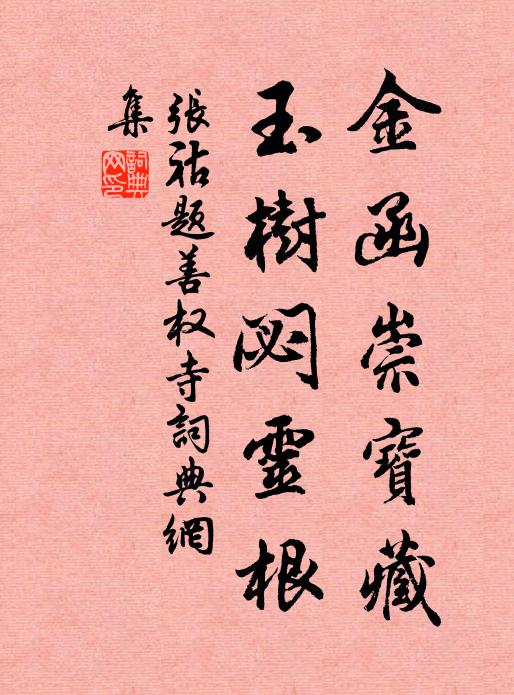 金函崇寶藏
玉樹閟靈根
張祜題善权寺詞典網
集
詞典
网印